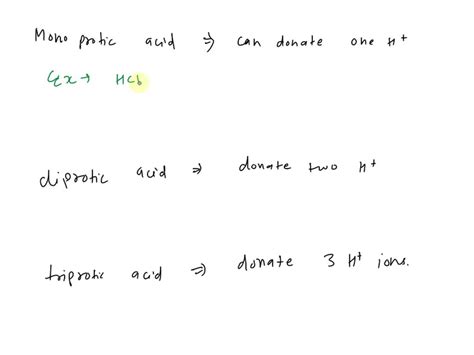 Mono protic acid ⇒ can donate one H⁺
Ex → HCl
diprotic acid ⇒ donate two H⁺
triprotic acid ⇒ donate 3 H⁺ ions.